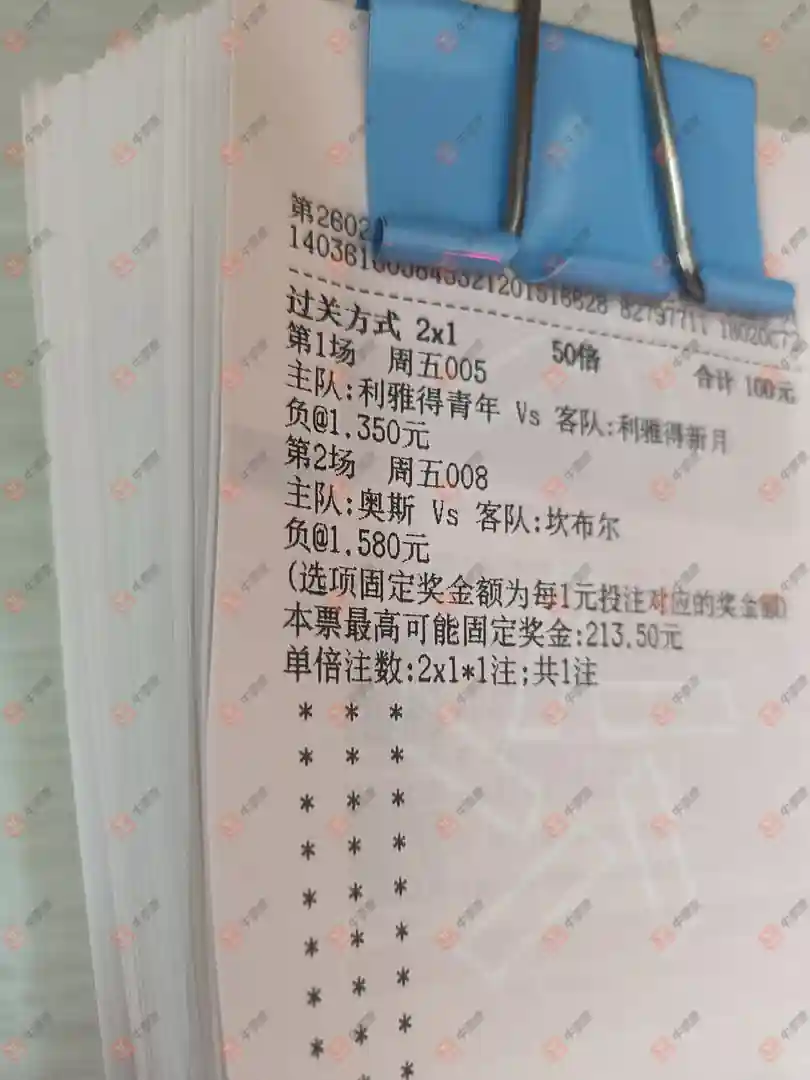 第2602
过关方式 2x1 50倍 合计 100元
第1场 周五005
主队:利雅得青年 Vs 客队:利雅得新月
负@1.350元
第2场 周五008
主队:奥斯 Vs 客队:坎布尔
负@1.580元
(选项固定奖金额为每1元投注对应的奖金额)
本票最高可能固定奖金:213.50元
单倍注数:2x1*1注;共1注
* * *
* * *
* * *
* * *
* * *
* * *
* * *
* * *
* *